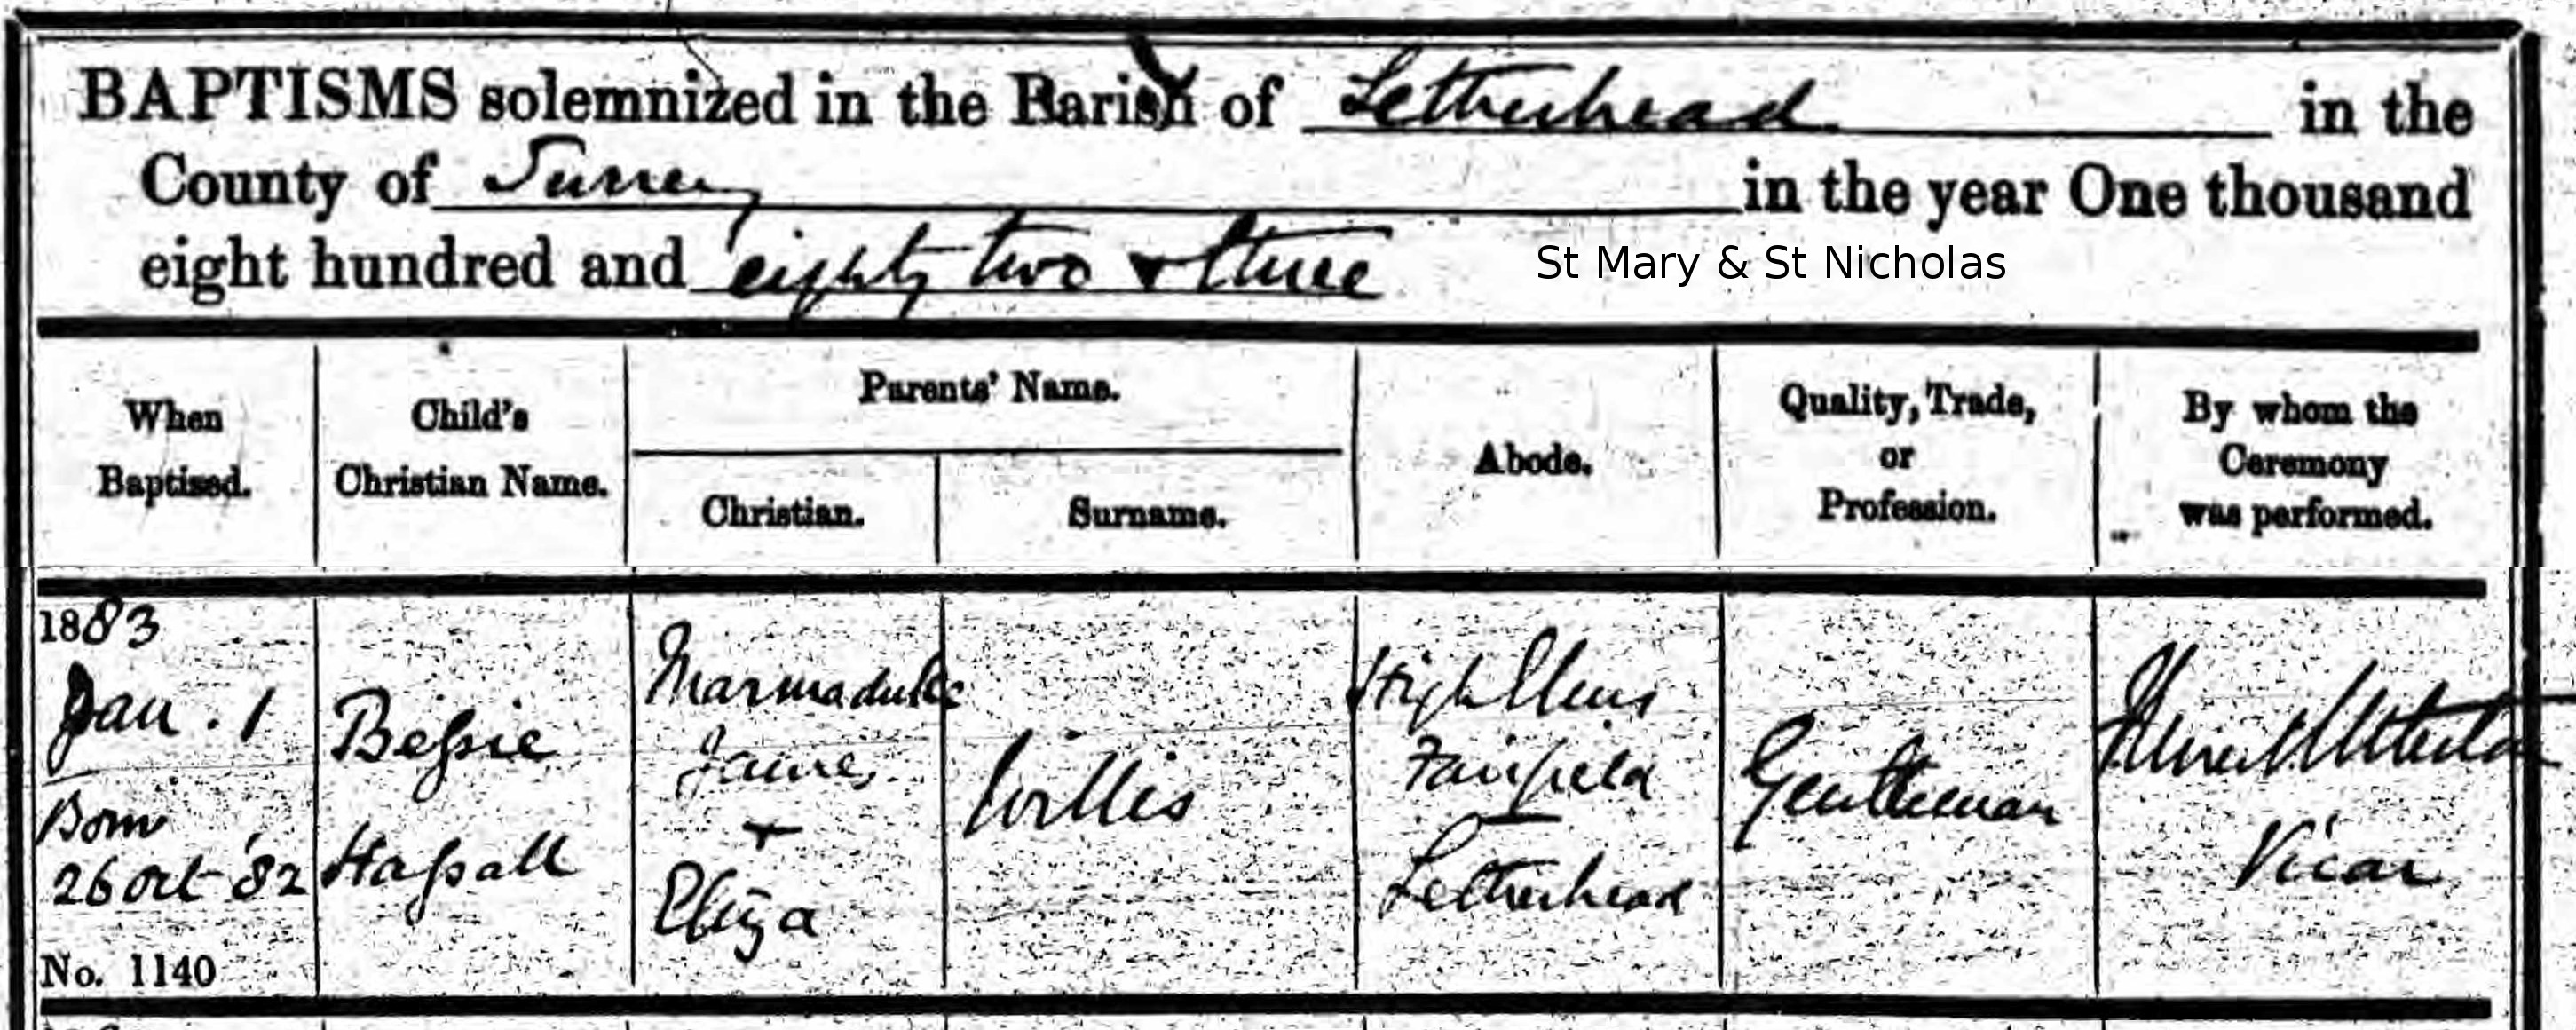 BAPTISMS solemnized in the Parish of Letherhead in the
County of Surrey in the year One thousand
eight hundred and eighty two & three
St Mary & St Nicholas
When
Baptised.
Child's
Christian Name.
Parents' Name.
Christian.
Surname.
Abode.
Quality, Trade,
or
Profession.
By whom the
Ceremony
was performed.
1883
Jan. 1
Born
26 Oct '82
No. 1140
Beſsie
Haſsall
Marmaduke
James
+
Eliza
Willis
High
Fairfield
Letherhead
Gentleman
Vicar